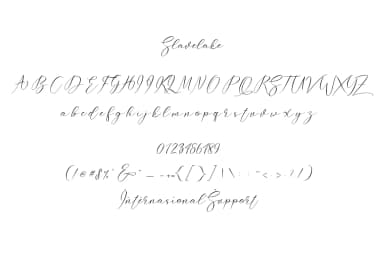 Slavelake
A B C D E F G H I J K L M N O P Q R S T U V W X Y Z
a b c d e f g h i j k l m n o p q r s t u v w x y z
0123456789
Internasional Support